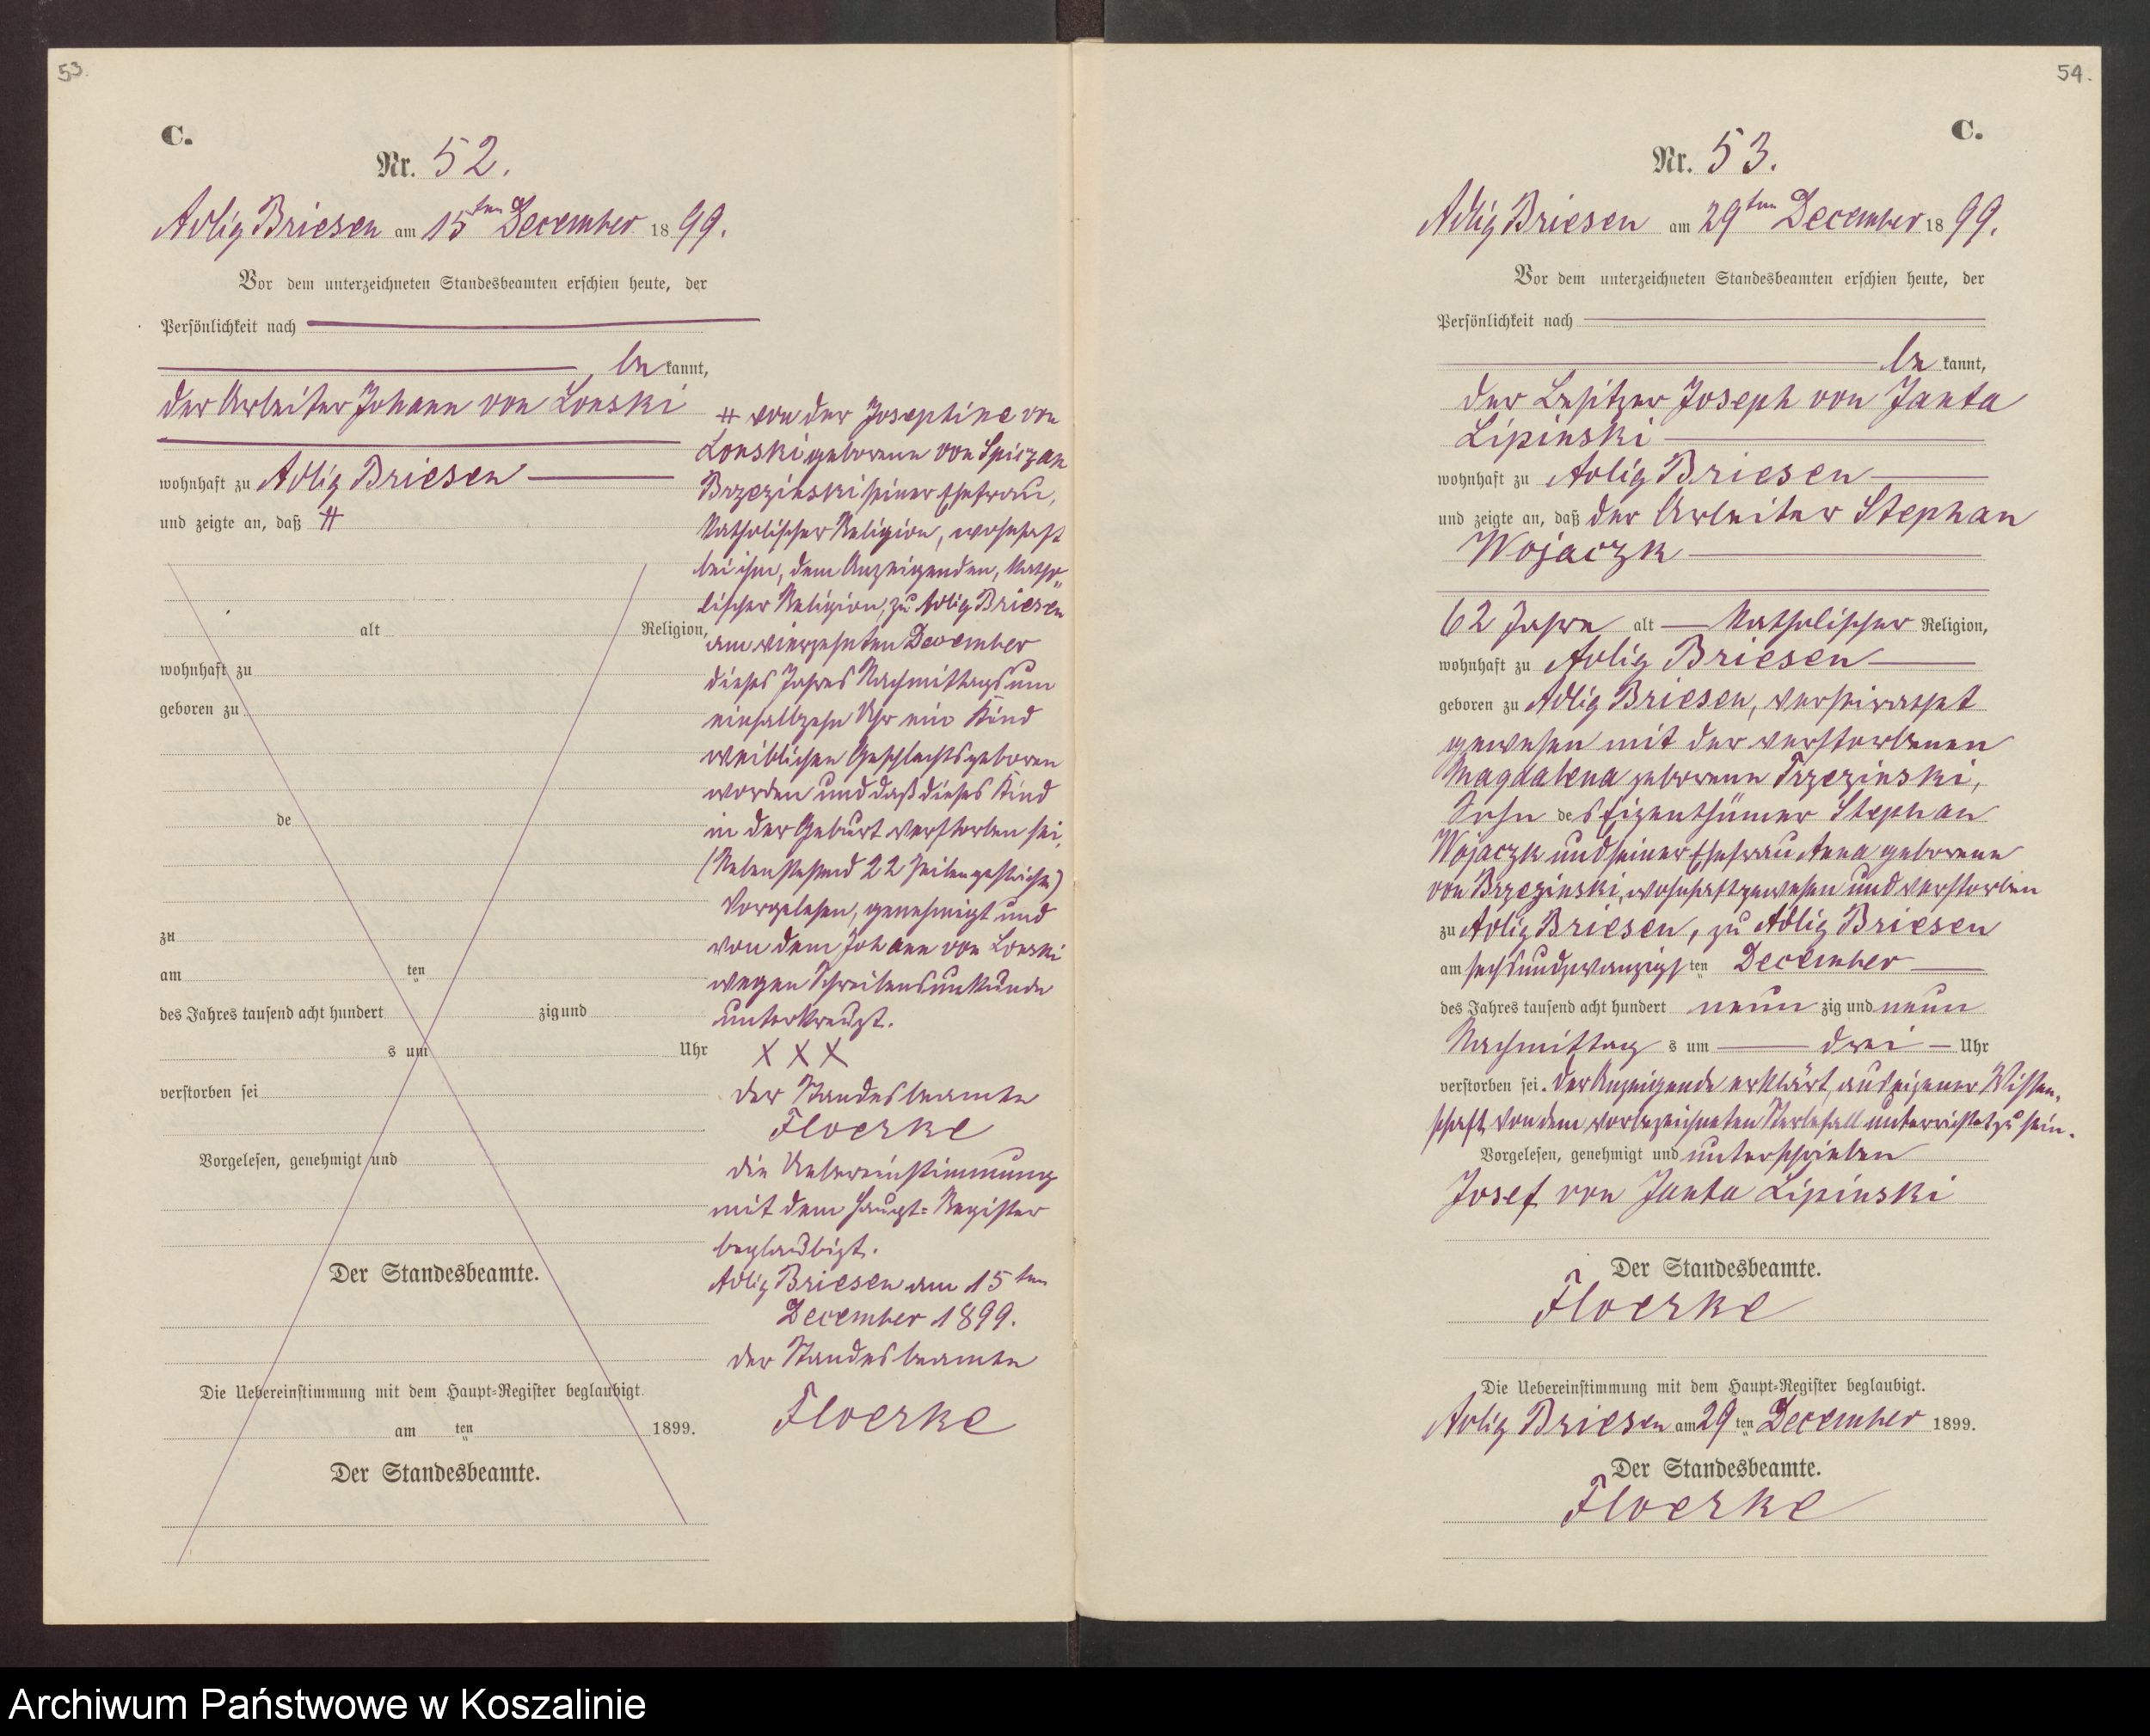 53.
C.
Nr. 52.
Adlig Briesen am 15ten December 1899.
Vor dem unterzeichneten Standesbeamten erschien heute, der
Persönlichkeit nach
be kannt,
der Arbeiter Johann von Lonski
wohnhaft zu Adlig Briesen
und zeigte an, daß #
alt Religion,
wohnhaft zu
geboren zu
de
zu
am ten
des Jahres tausend acht hundert zig und
s um Uhr
verstorben sei
Vorgelesen, genehmigt und
Der Standesbeamte.
Die Uebereinstimmung mit dem Haupt-Register beglaubigt.
am ten 1899.
Der Standesbeamte.
# von der Josephine von
Lonski geborene von Spiczak
Brzezinski seiner Ehefrau,
katholischer Religion, wohnhaft
bei ihm, dem Anzeigenden, katho-
lischer Religion, zu Adlig Briesen
am vierzehnten December
dieses Jahres Nachmittags um
einhalbzehn Uhr ein Kind
weiblichen Geschlechts geboren
worden und daß dieses Kind
in der Geburt verstorben sei.
(Nebenstehend 22 Zeilen gestrichen)
Vorgelesen, genehmigt und
von dem Johann von Lonski
wegen Schreibensunkunde
unterkreuzt.
X X X
der Standesbeamte
Floerke
die Uebereinstimmung
mit dem Haupt-Register
beglaubigt.
Adlig Briesen am 15ten
December 1899.
der Standesbeamte
Floerke
54.
C.
Nr. 53.
Adlig Briesen am 29ten December 1899.
Vor dem unterzeichneten Standesbeamten erschien heute, der
Persönlichkeit nach
be kannt,
der Besitzer Joseph von Janta
Lipinski
wohnhaft zu Adlig Briesen
und zeigte an, daß der Arbeiter Stephan
Wojaczk
62 Jahre alt katholischer Religion,
wohnhaft zu Adlig Briesen
geboren zu Adlig Briesen, verheirathet
gewesen mit der verstorbenen
Magdalena geborene Trzezinski,
Sohn des Eigenthümer Stephan
Wojaczk und seiner Ehefrau Anna geborene
von Brzezinski, wohnhaft gewesen und verstorben
zu Adlig Briesen, zu Adlig Briesen
am sechsundzwanzigsten December
des Jahres tausend acht hundert neun zig und neun
Nachmittag s um drei Uhr
verstorben sei. Der Anzeigende erklärt, aus eigener Wissen-
schaft von dem vorbezeichneten Sterbefall unterrichtet zu sein.
Vorgelesen, genehmigt und unterschrieben
Josef von Janta Lipinski
Der Standesbeamte.
Floerke
Die Uebereinstimmung mit dem Haupt-Register beglaubigt.
Adlig Briesen am 29 ten December 1899.
Der Standesbeamte.
Floerke
Archiwum Państwowe w Koszalinie